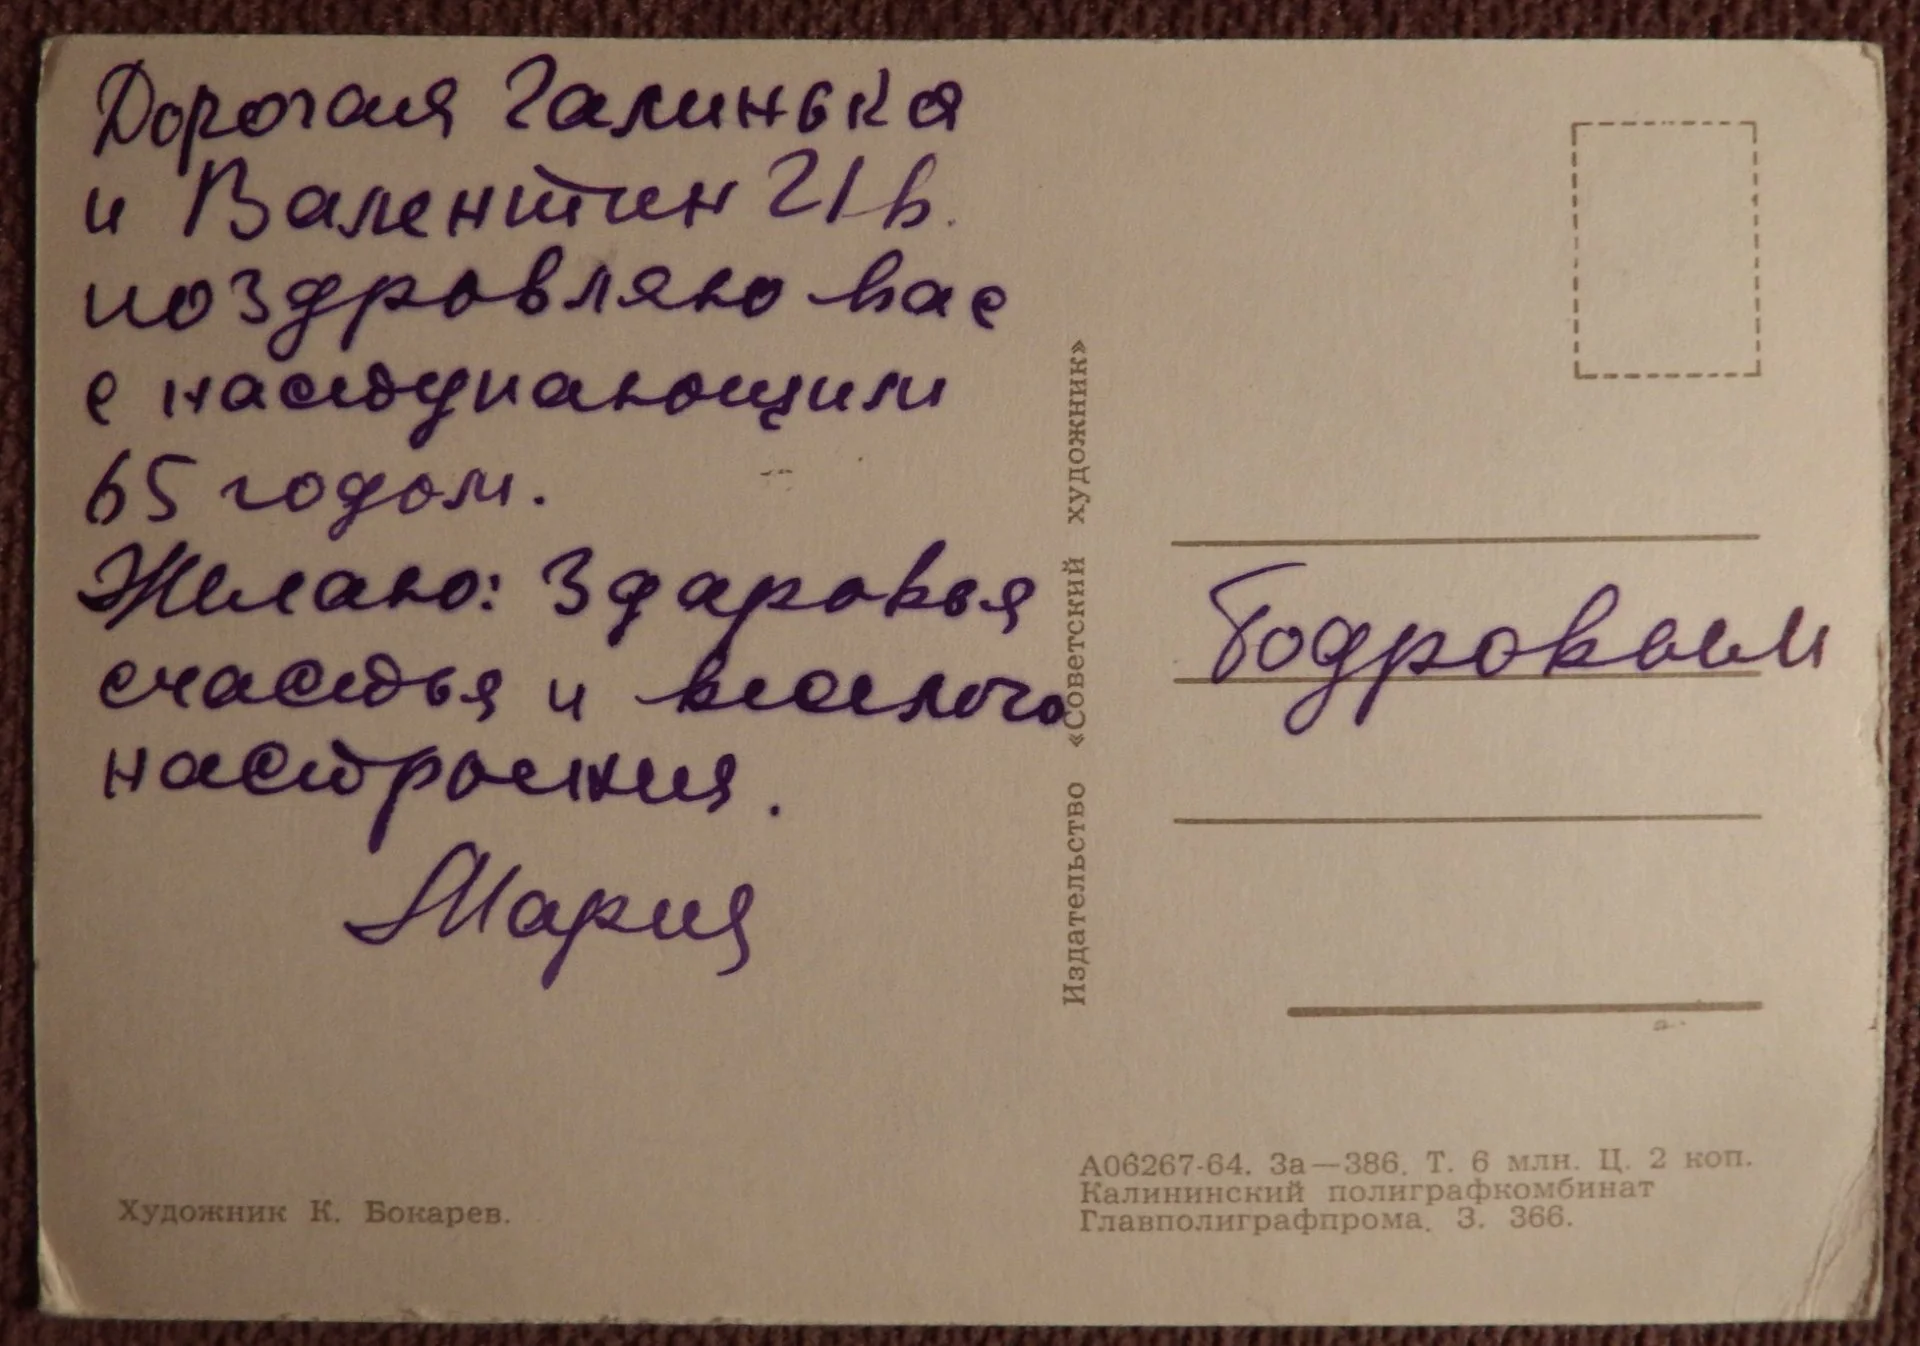 Дорогая Галинька
и Валентин
поздровляю вас
с наступающим
65 годом.
Желаю: Здаровья
счастья и веселого
настроения.
Мария
Художник К. Бокарев.
Издательство «Советский художник»
Бодровым
А06267-64. За—386. Т. 6 млн. Ц. 2 коп.
Калининский полиграфкомбинат
Главполиграфпрома. З. 366.